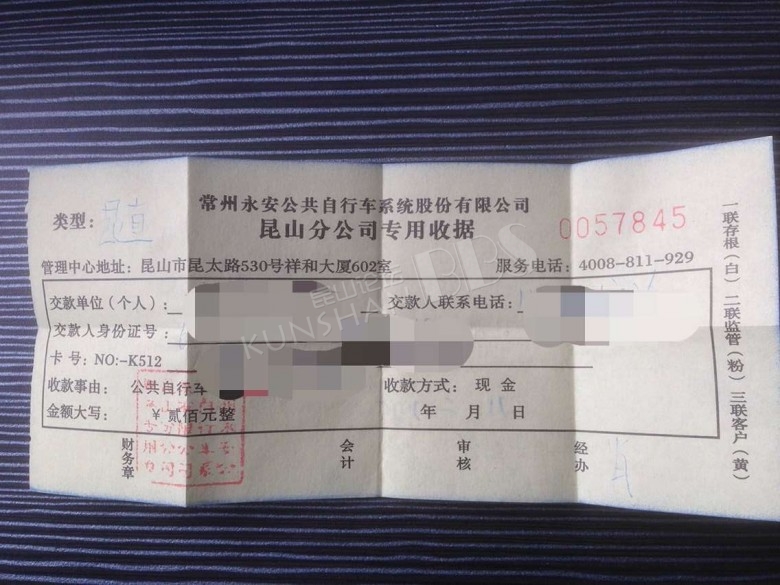 常州永安公共自行车系统股份有限公司
类型：
昆山分公司专用收据
0057845
管理中心地址：昆山市昆太路530号祥和大厦602室
服务电话：4008-811-929
交款单位（个人）：
交款人联系电话：
交款人身份证号：
卡 号：NO:-K512
收款事由：公共自行车
收款方式：现金
金额大写：￥贰佰元整
年 月 日
财务章
会计
审核
经办
一联存根（白）二联监管（粉）三联客户（黄）
昆山论坛
KUNSHAN BBS